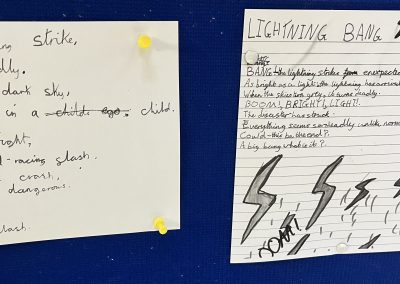 strike,
dark sky,
in a child. ego. child.
-racing slash.
crash,
dangerous.
LIGHTNING BANG
BANG the lightning strike from
As bright as a light the lightning has
When the skies turn grey, it turns deadly.
BOOM!, BRIGHT!, LIGHT!.
The disaster has struck.
Everything seems so deadly unlike
Could this be the end?.
A big bang what is it?.